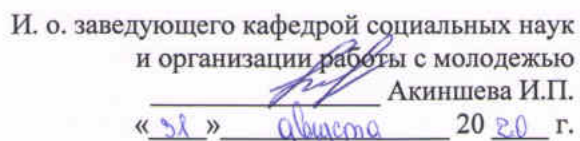 И. о. заведующего кафедрой социальных наук
и организации работы с молодежью
Акиншева И.П.
«31» августа 2020 г.